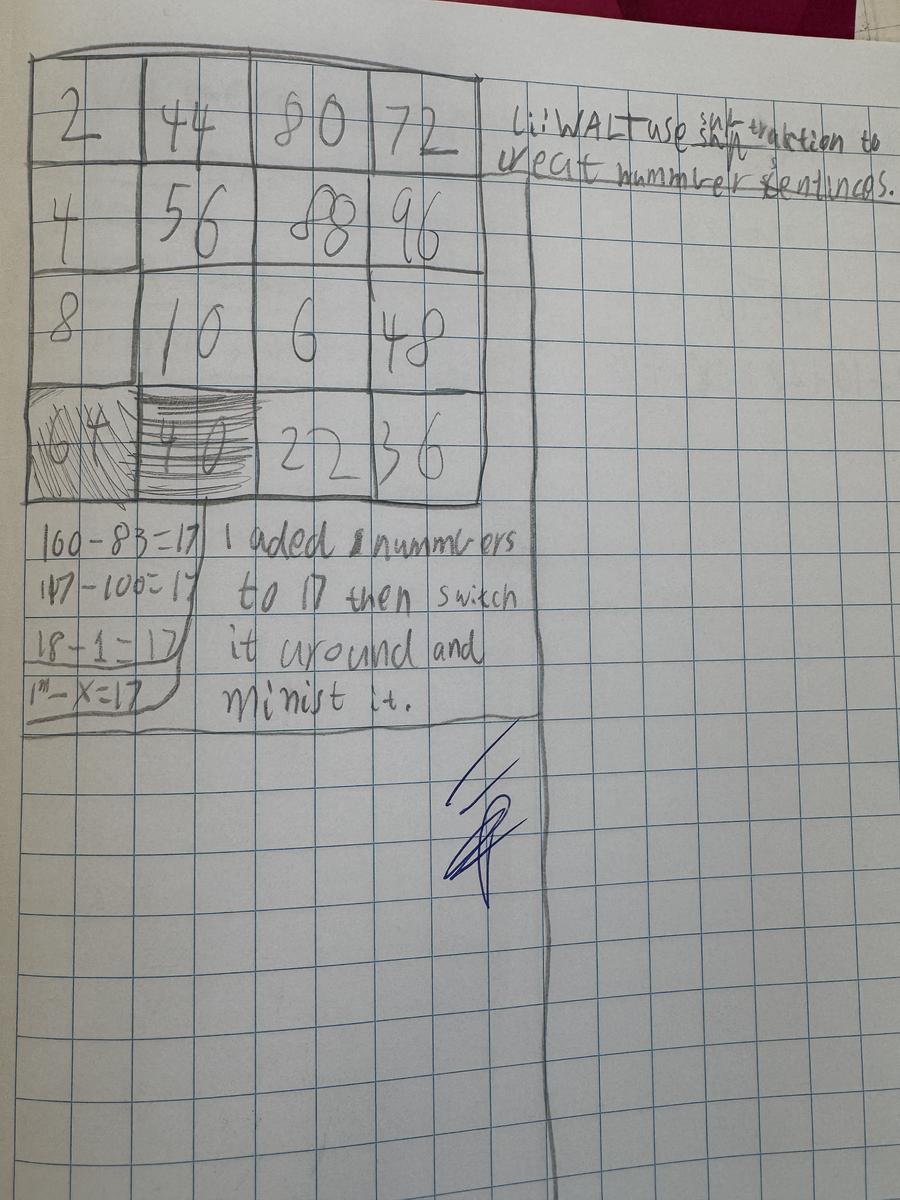 2 44 80 72
4 56 88 96
8 10 6 48
64 40 22 36
Li: WALT use subtraktion to
creat nummber sentincas.
100-83=17
117-100=17
18-1=17
I aded nummbers
to 17 then switch
it around and
minist it.